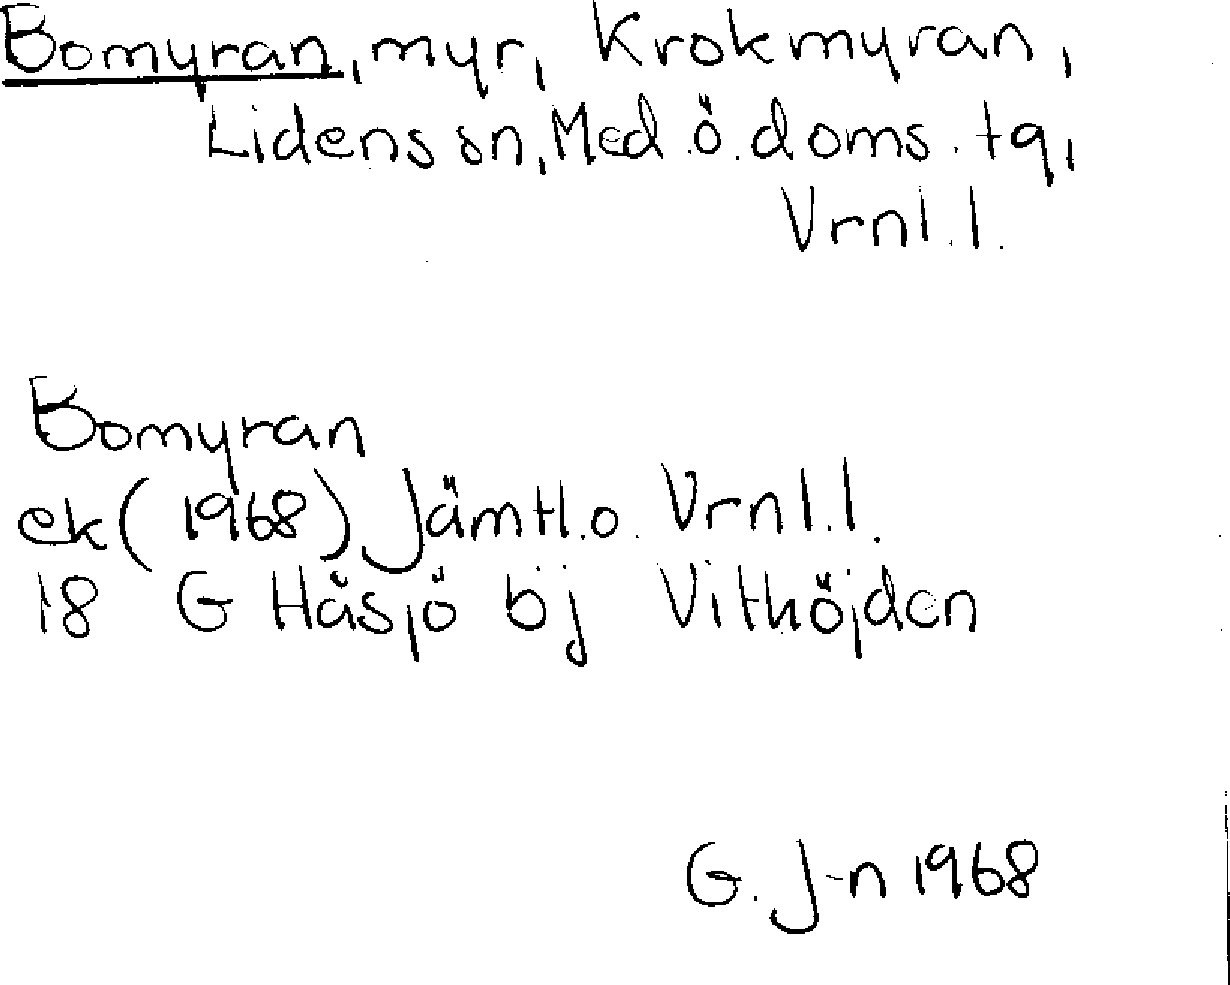 Bomyran, myr, Krokmyran,
Lidens sn, Med.ö.doms.tg,
Vrnl.l.
Bomyran
ek (1968) Jämtl.o. Vrnl.l.
18 G Håsjö bj Vithöjden
G. J-n 1968